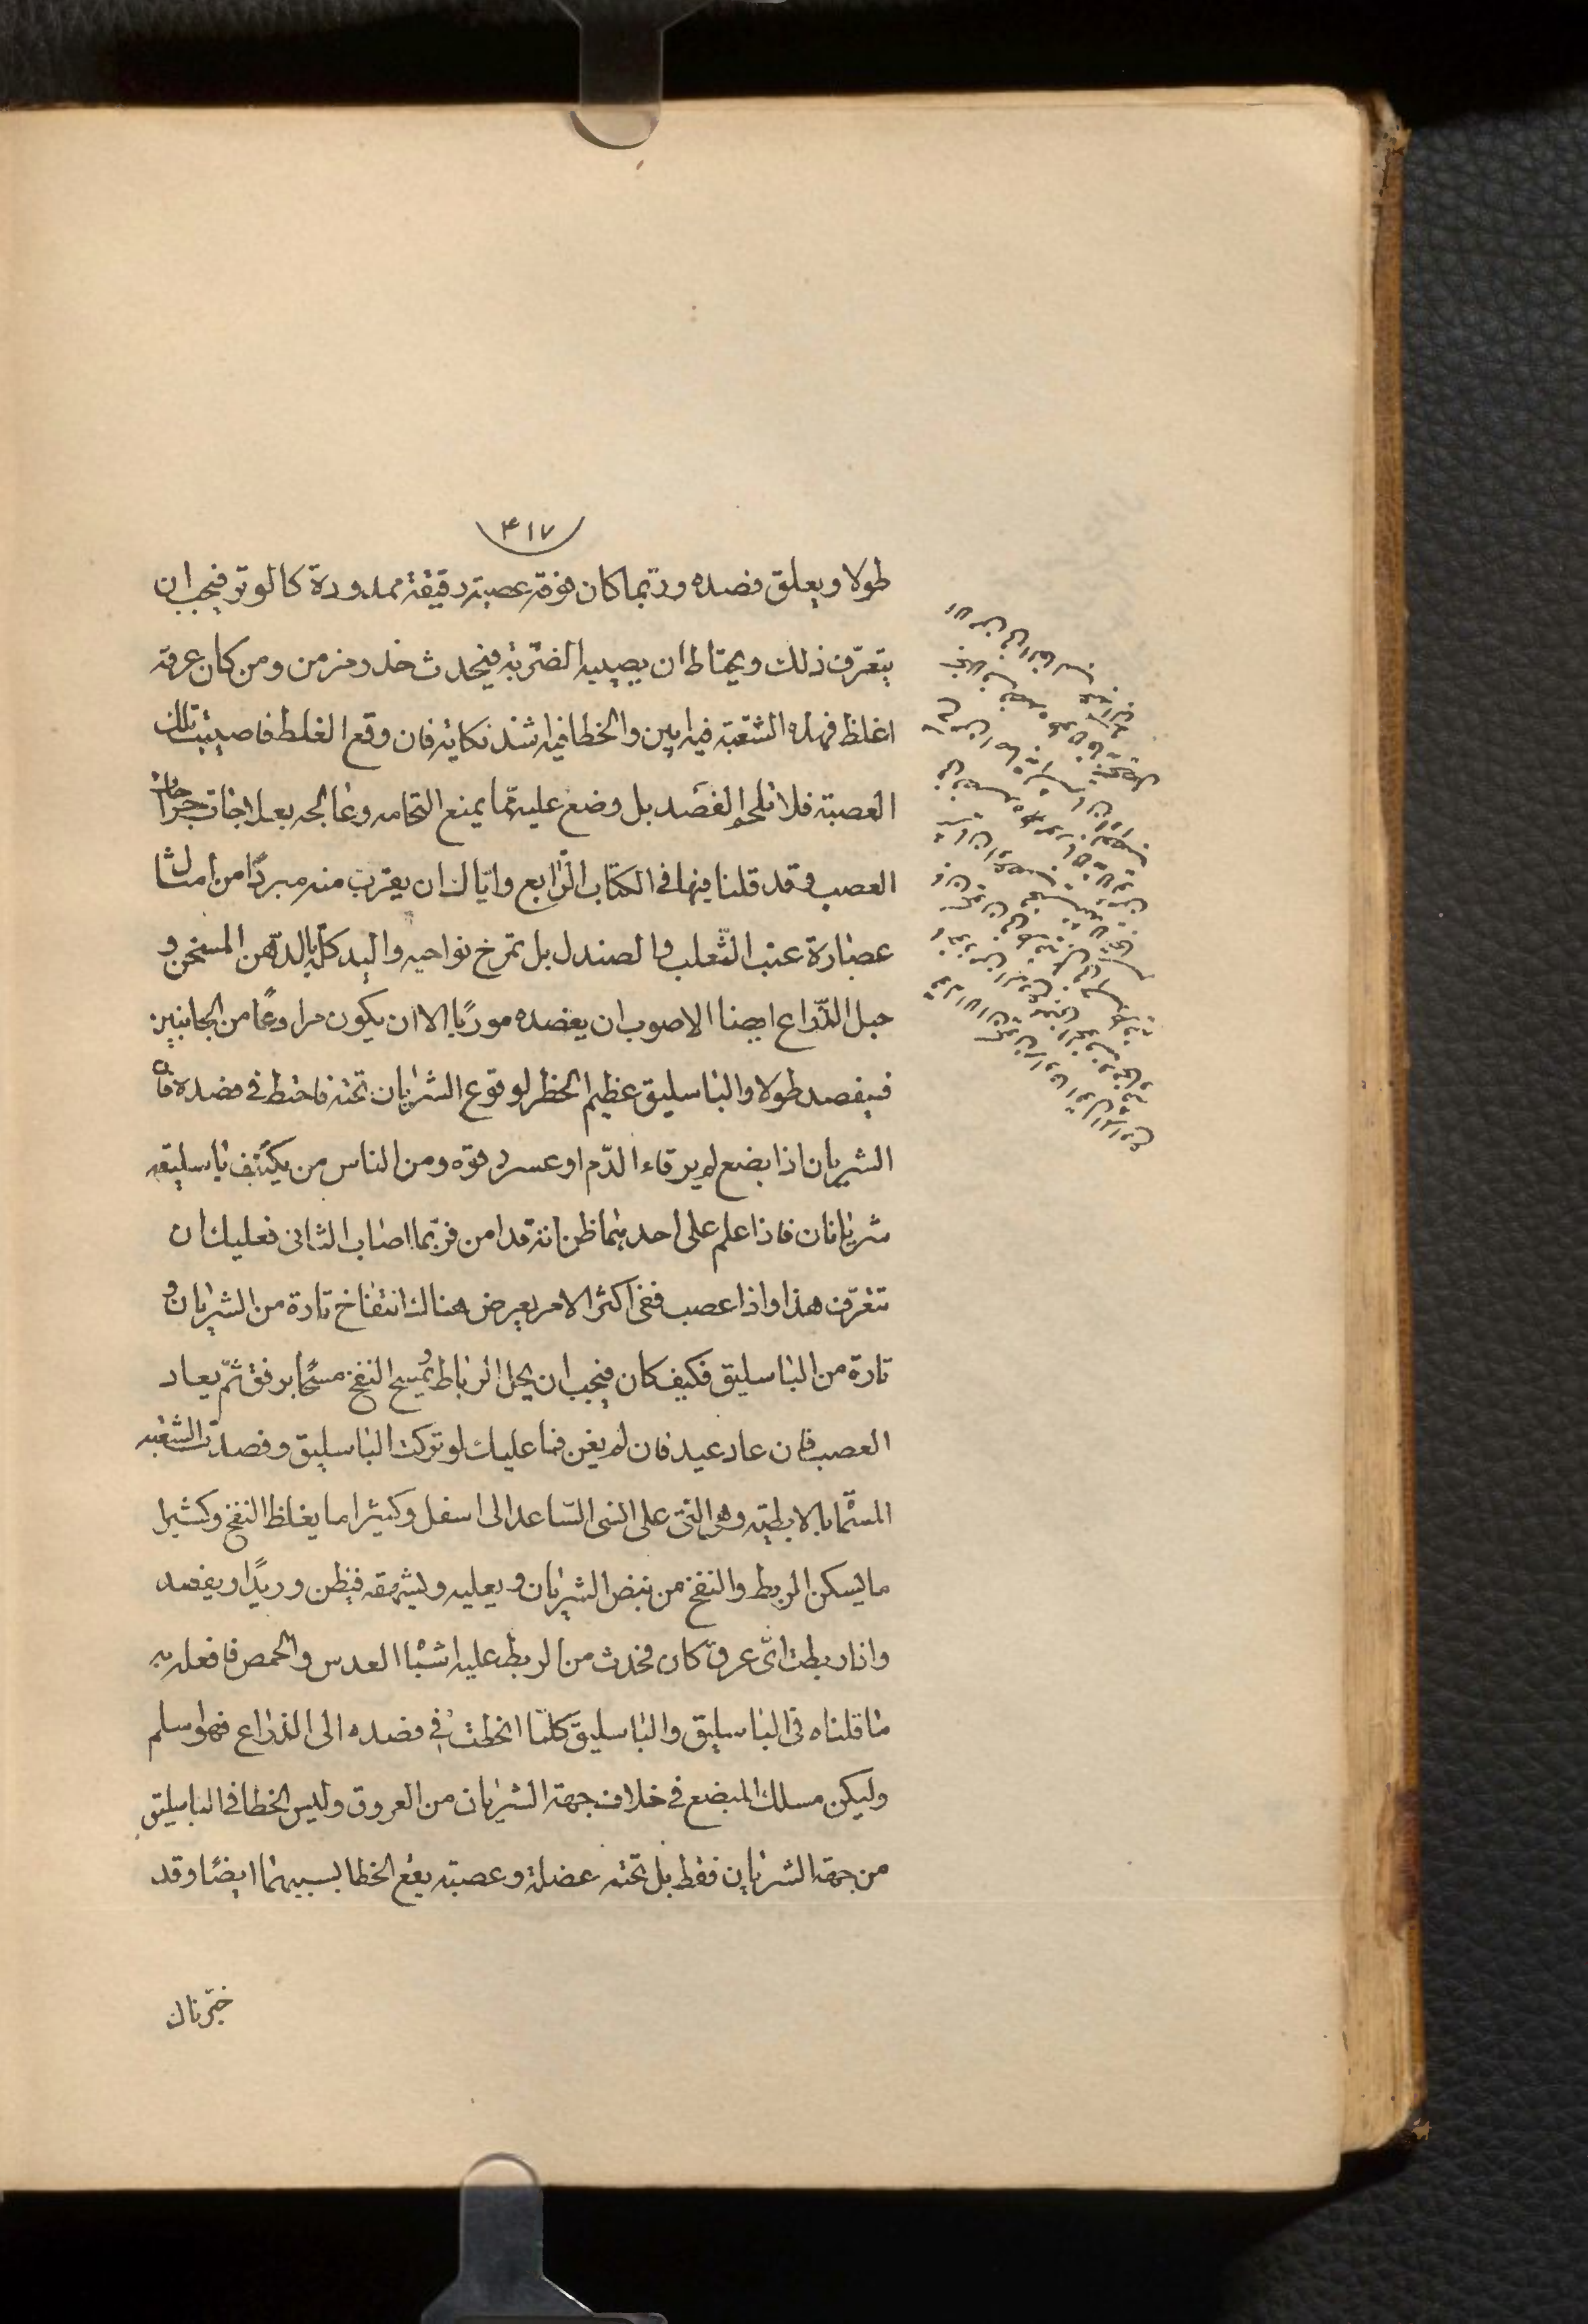 ٤١٧
طولا ويعلق فصده وربّما كان فوقه عصبة دقيقة ممدودة كالوتر فيجب ان
يتعرّف ذلك ويحتاط ان يصيبه الضّربة فيحدث خدر مزمن ومن كان عرقه
اغلظ فهذه الشّعبة فيه ابين والخطا فيه اشدّ نكاية فان وقع الغلط فاصيبت تلك
العصبة فلا تلحم الفصد بل وضع عليه ممّا يمنع التحامه وعالجه بعلاجات جراحات
العصب وقد قلنا فيها فى الكتاب الرّابع وايّاك ان يقرب منه مبردًا من امثال
عصارة عنب الثّعلب والصندل بل تمرخ نواحيه والبدن كلّه بالدّهن المسخن و
حبل الذّراع ايضا الاصوب ان يفصده مورّبا الا ان يكون مراوغًا من الجانبين
فيفصد طولا والباسليق عظيم الخطر لوقوع الشّريان تحته فاحتط فى فصده فان
الشريان اذا بضع لم يرقاء الدّم او عسر رقوّه ومن الناس من يكتنف باسليقه
شريانان فاذا علم على احدهما ظن انه قد امن فربّما اصاب الثانى فعليك ان
تتعرّف هذا واذا عصب ففى اكثر الامر يعرض هناك انتفاخ تارة من الشريان و
تارة من الباسليق فكيف كان فيجب ان يحل الرباط ويمسح النفخ مسحًا برفق ثمّ يعاد
العصب فان عاد عيد فان لم يغن فما عليك لو تركت الباسليق وفصدت الشعبة
المسمّاة بالابطيّة وهى التى على انسى السّاعد الى اسفل وكثيرا ما يغلظ النفخ وكثيرا
ما يسكن الربط والنفخ من نبض الشريان ويعليه ويشهقه فيظن وريدًا ويفصد
واذا ربطت اىّ عرق كان فحدث من الربط عليه اشباه العدس والحمص فافعل به
ما قلناه فى الباسليق والباسليق كلّما انحطت فى فصده الى الذراع فهو اسلم
وليكن مسلك المبضع فى خلاف جهة الشريان من العروق وليس الخطا فى الباسليق
من جهة الشريان فقط بل تحته عضلة وعصبة يقع الخطا بسببهما ايضًا وقد
خبّرناك